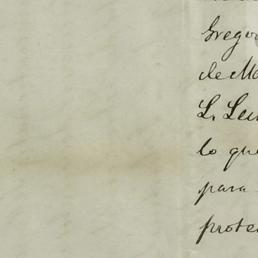 Grego
de Ma
L. Leu
lo que
para
prote